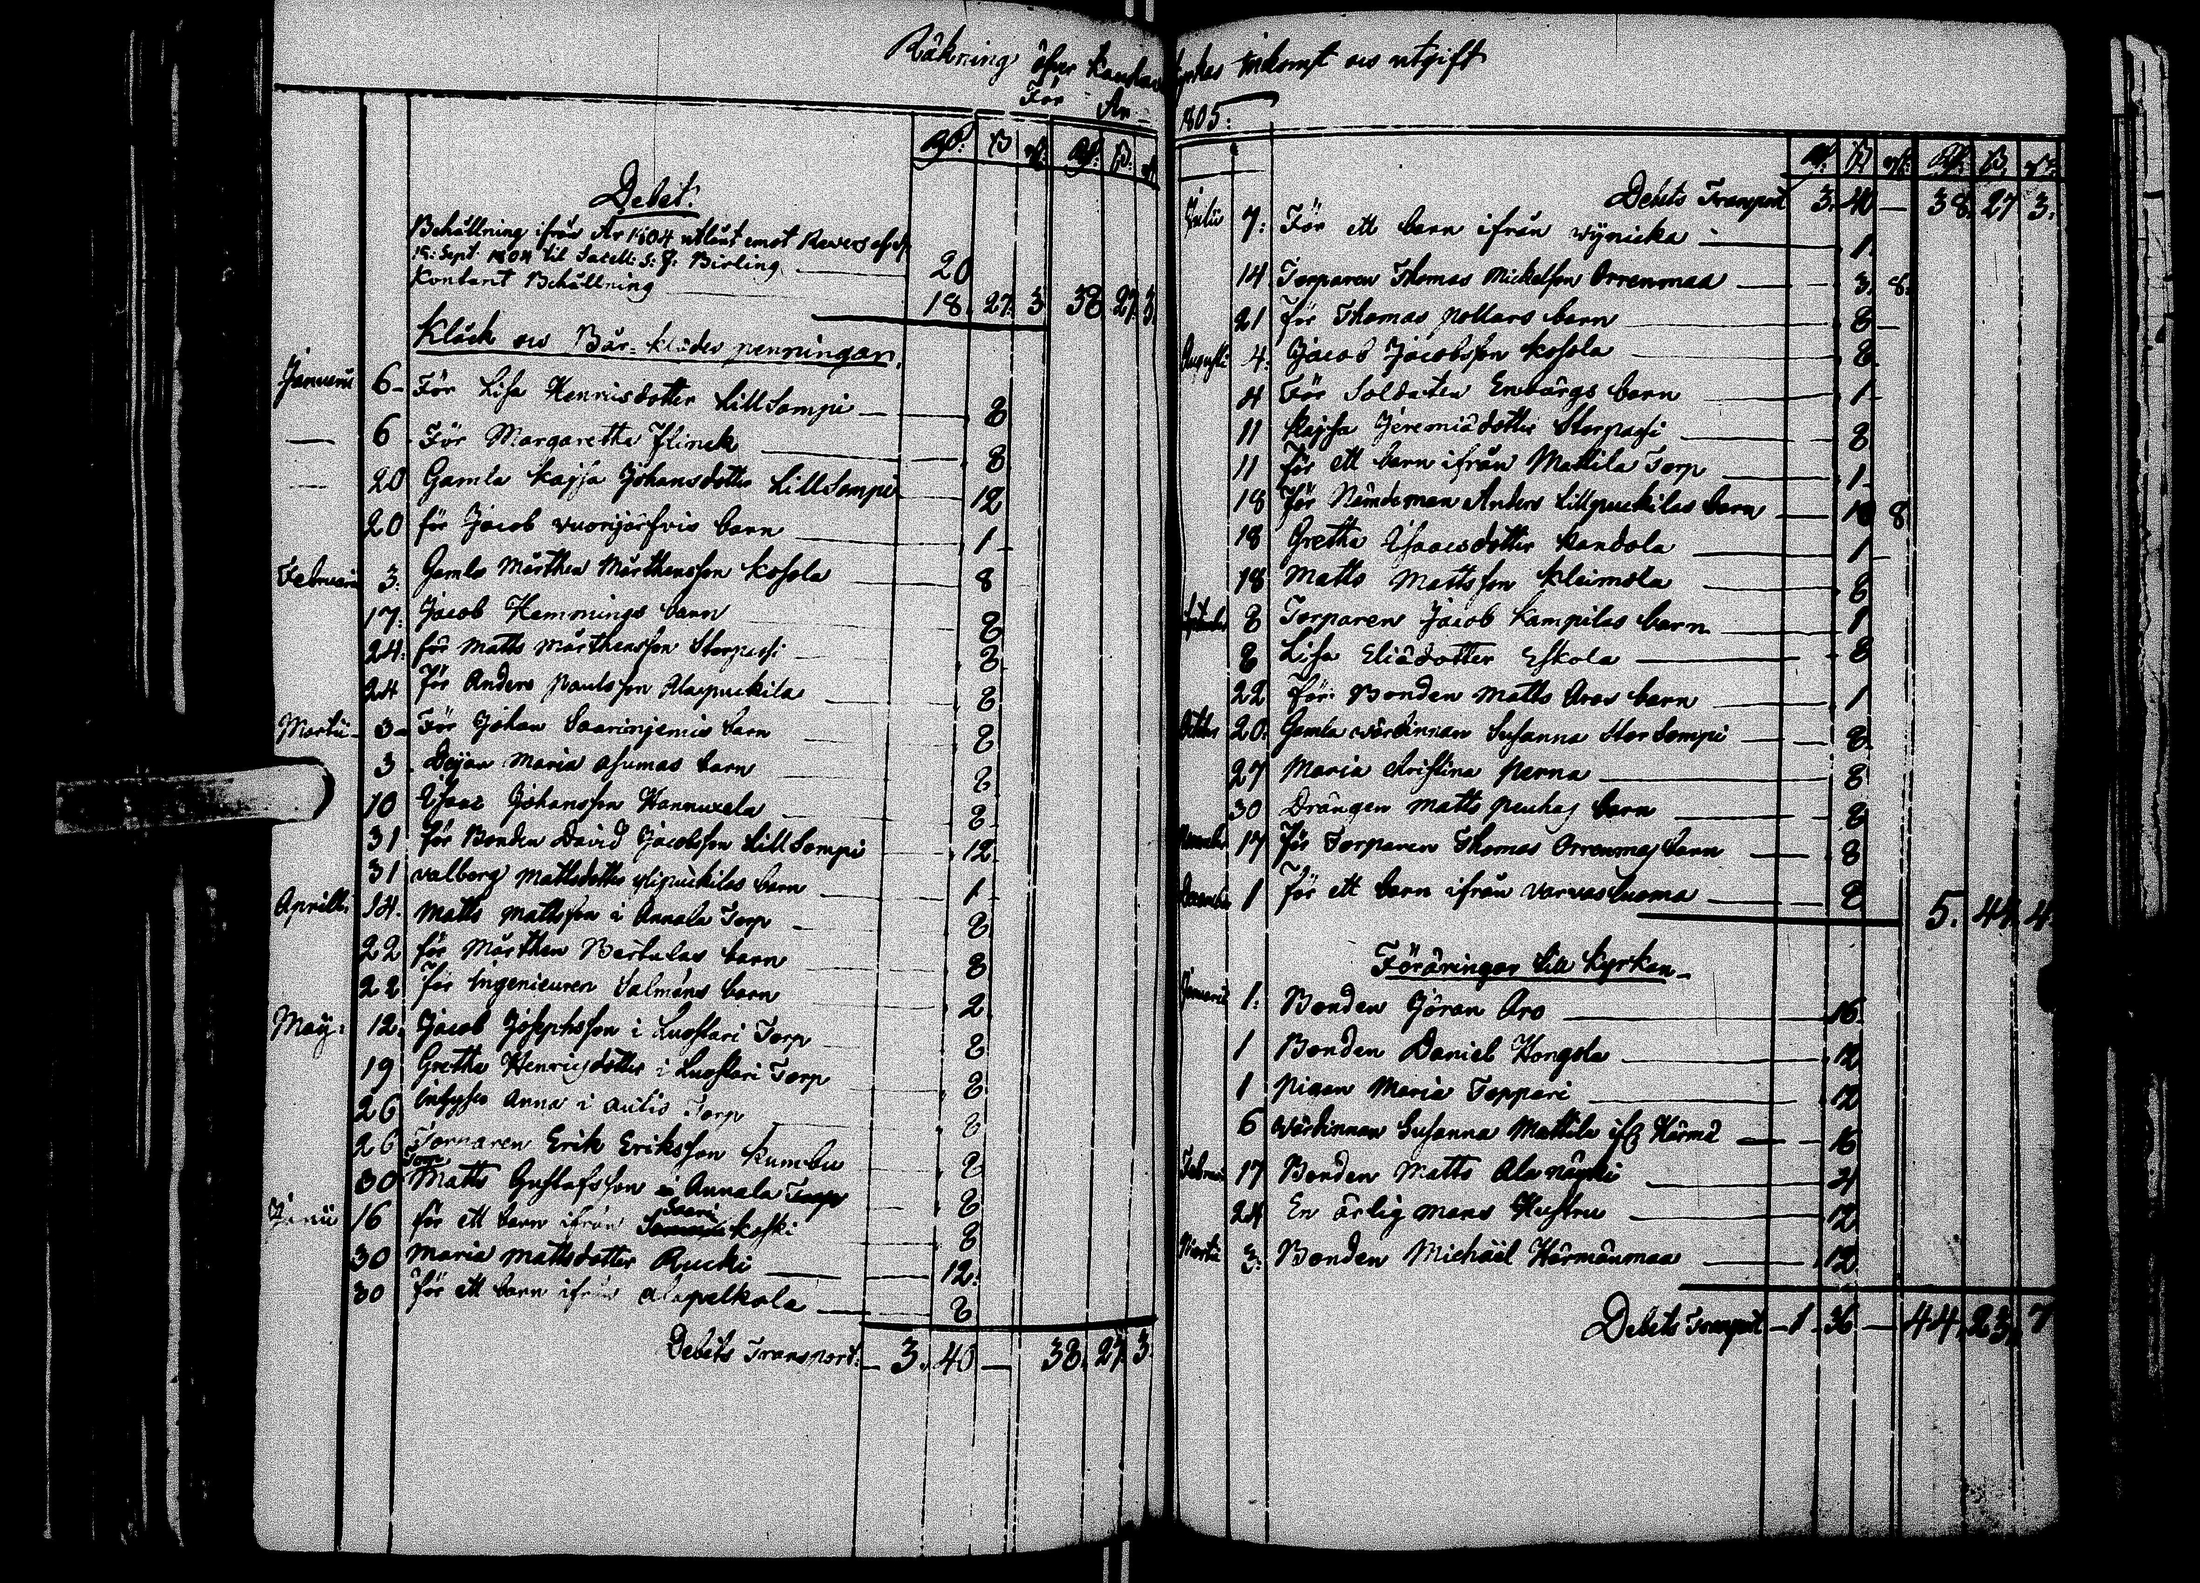 Räkning öfver Kauhava kyrkas inkomst och utgift
För År 1805:
Debet:
Behållning ifrån År 1804 utlånt emot Revers af d.
15: Sept. 1804 til Sacell: S: J: Birling 20
Kontant Behållning 18. 27. 3. 38. 27. 3.
Klåck och Bår-klädes penningar.
Januarii 6 För Lisa Henricsdotter LillSompi 8
6 För Margaretha Flinck 8
20 Gamla Kajsa Johansdotter LillSompi 12
20 för Jacob Wuorijärfvis barn 1
Februarii 3. Gamla Mårthen Mårthensson Kosola 8
17. Jacob Hemmings barn 8
24. för Matts Mårthensson Storpassi 8
24 för Anders Paulsson Alapuckila 8
Martii 3 För Johan Saarinjemis barn 8
3 Deijan Maria Asumas barn 8
10 Isaac Johansson Hannuxela 8
31 för Bonden David Jacobsson LillSompi 12
31 Valborg Mattsdotter ylipuckilas barn 1
Aprill: 14. Matts Mattsson i Annala Torp 8
22 för Mårthen Bertulas barn 8
22 för Ingenieuren Salméns barn 2
Maij: 12. Jacob Josephsson i Luostari Torp 8
19 Gretha Henricsdotter i Luostari Torp 8
26 Inhyses Anna i Autio Torp 8
26 Torparen Erik Eriksson Kumbu 8
30 Torp Matts Gustafsson i Annala Torp 8
Junii 16 för ett barn ifrån Saari koski 8
30 Maria Mattsdotter Rucki 12.
30 för ett barn ifrån Alapelkola 8
Debets Transport. 3. 40 — 38. 27. 3.
Debets Transport 3. 40 — 38. 27. 3.
Julii 7. För ett barn ifrån Wynicka 1.
14 Torparen Thomas Mickelsson Orrenmaa 3. 8.
21 för Thomas Pollars barn 8
Augusti 4. Jacob Jacobsson Kosola 8
4 För Soldaten Enbärgs barn 1
11 Kajsa Jeremiædotter Storpassi 8
11 för ett barn ifrån Mattila Torp 1
18 för Nämdeman Anders Lillpuckilas barn 10 8
18 Gretha Isaacsdotter Kandola 1
18 Matts Mattsson Kleimola 8
8 Torparen Jacob Kampilas barn 1
8 Lisa Eliædotter Eskola 8
22 för Bonden Matts Aros barn 1
20. Gamla Värdinnan Susanna StorSompi 8
27 Maria Kristina Perna 8
30 Drängen Matts Peuhas barn 8
17 för Torparen Thomas Orrenmas barn 8
1 för ett barn ifrån Varvasluoma 8 5. 44. 4.
Föräringar till Kyrkan
Januarii 1. Bonden Göran Aro 16.
1 Bonden Daniel Hongola 12
1 Pigan Maria Toppari 12
6 Värdinnan Susanna Mattila ifr Härmä 16
17 Bonden Matts Ala näyki 4
24 En ärlig mans Hustru 12
Martii 3. Bonden Michaël Härmänmaa 12
Debets Transport 1. 36 — 44. 23. 7